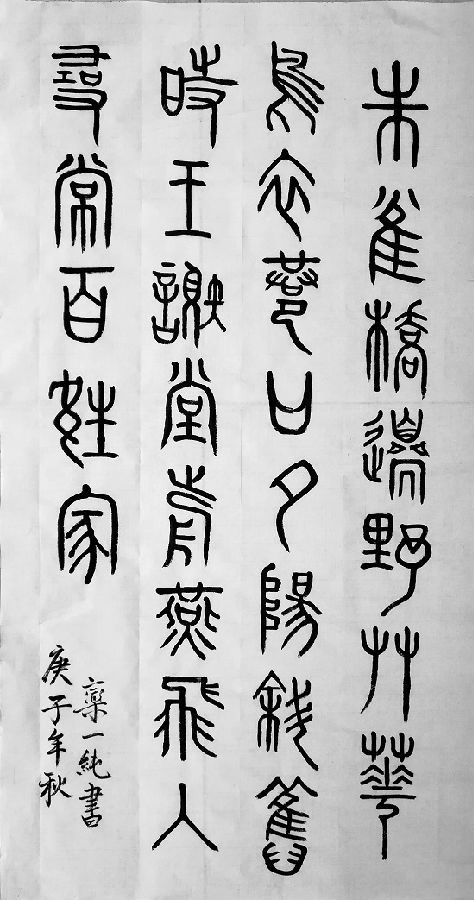 朱雀橋邊野艸華
烏衣巷口夕陽斜舊
時王謝堂歬燕飛入
尋常百姓家
欒一純書
庚子年秋